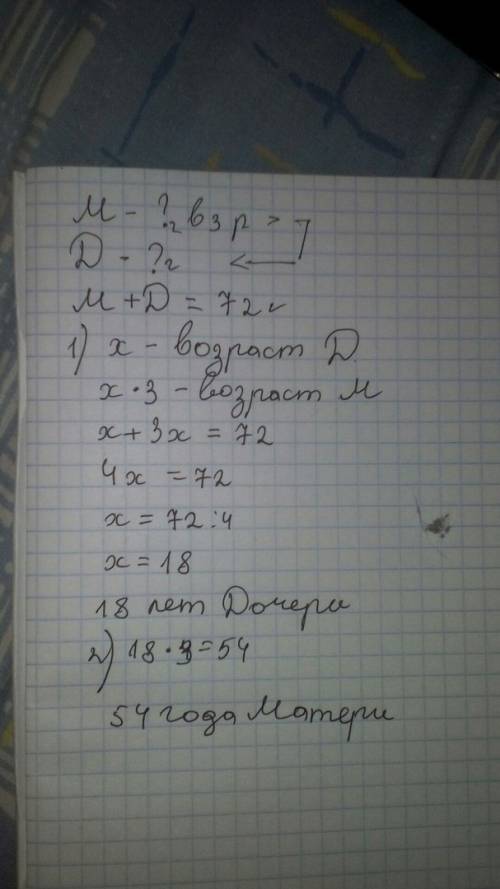 М - ?г в 3 р >
D - ?г
М + D = 72 г
1) x - возраст D
x · 3 - возраст М
x + 3x = 72
4x = 72
x = 72 : 4
x = 18
18 лет Дочери
2) 18 · 3 = 54
54 года Матери